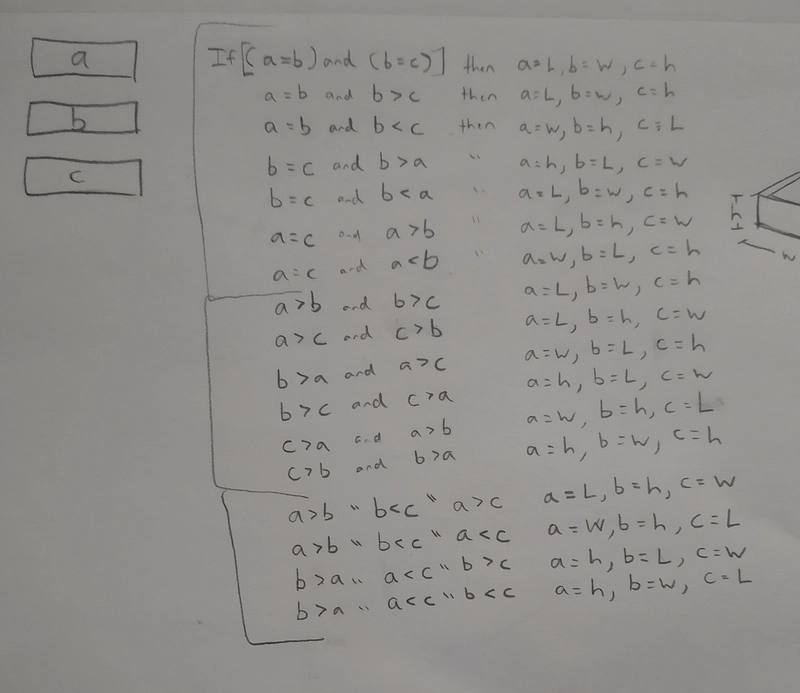 a
b
c
If [(a=b) and (b=c)] then a=L, b=w, c=h
a=b and b>c then a=L, b=w, c=h
a=b and b<c then a=w, b=h, c=L
b=c and b>a " a=h, b=L, c=w
b=c and b<a " a=L, b=w, c=h
a=c and a>b " a=L, b=h, c=w
a=c and a<b " a=w, b=L, c=h
a>b and b>c a=L, b=w, c=h
a>c and c>b a=L, b=h, c=w
b>a and a>c a=w, b=L, c=h
b>c and c>a a=h, b=L, c=w
c>a and a>b a=w, b=h, c=L
c>b and b>a a=h, b=w, c=h
a>b " b<c " a>c a=L, b=h, c=w
a>b " b<c " a<c a=w, b=h, c=L
b>a " a<c " b>c a=h, b=L, c=w
b>a " a<c " b<c a=h, b=w, c=L
h
w